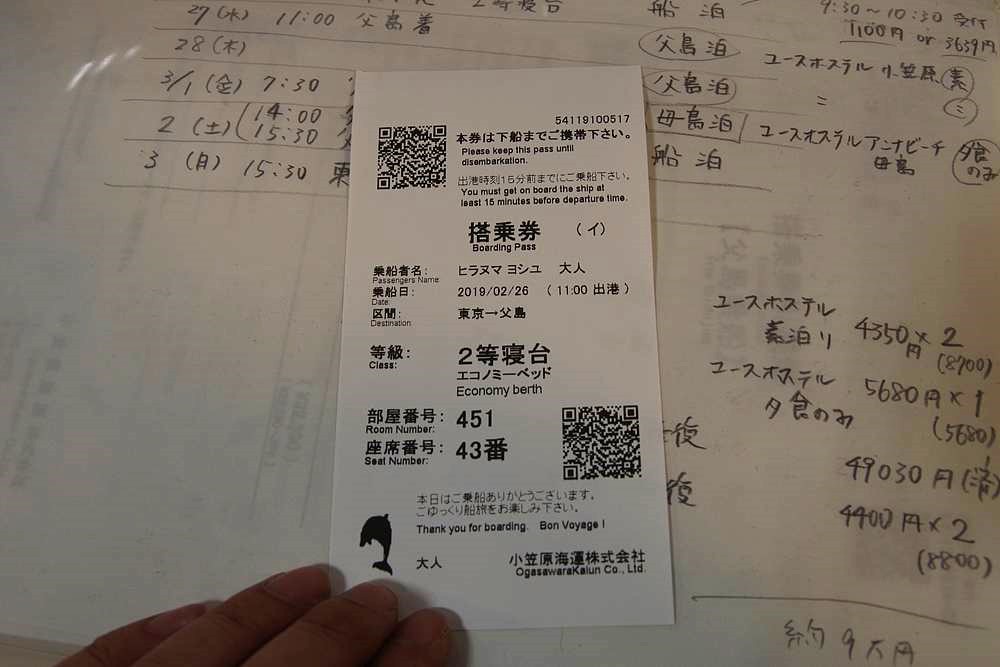 27(水) 11:00 父島着
2等寝台
船泊
9:30~10:30 受付
1100円 or 3639円
28(木)
父島泊
ユースホステル 小笠原 素
3/1(金) 7:30
父島泊
=
2(土) 14:00
15:30
母島泊
ユースホステル アンナビーチ
母島
夕食
のみ
3(月) 15:30 東
船泊
54119100517
本券は下船までご携帯下さい。
Please keep this pass until
disembarkation.
出港時刻15分前までにご乗船下さい。
You must get on board the ship at
least 15 minutes before departure time.
搭乗券 (イ)
Boarding Pass
乗船者名: ヒラヌマ ヨシユ 大人
Passengers Name
乗船日: 2019/02/26 (11:00 出港)
Date:
区間: 東京→父島
Destination:
等級: 2等寝台
Class: エコノミーベッド
Economy berth
部屋番号: 451
Room Number:
座席番号: 43番
Seat Number:
本日はご乗船ありがとうございます。
ごゆっくり船旅をお楽しみ下さい。
Thank you for boarding. Bon Voyage!
大人
小笠原海運株式会社
OgasawaraKaiun Co., Ltd.
ユースホステル
素泊り 4350円×2
(8700)
ユースホステル 5680円×1
夕食のみ
(5680)
復
49030円(済)
復
4400円×2
(8800)
約9万円